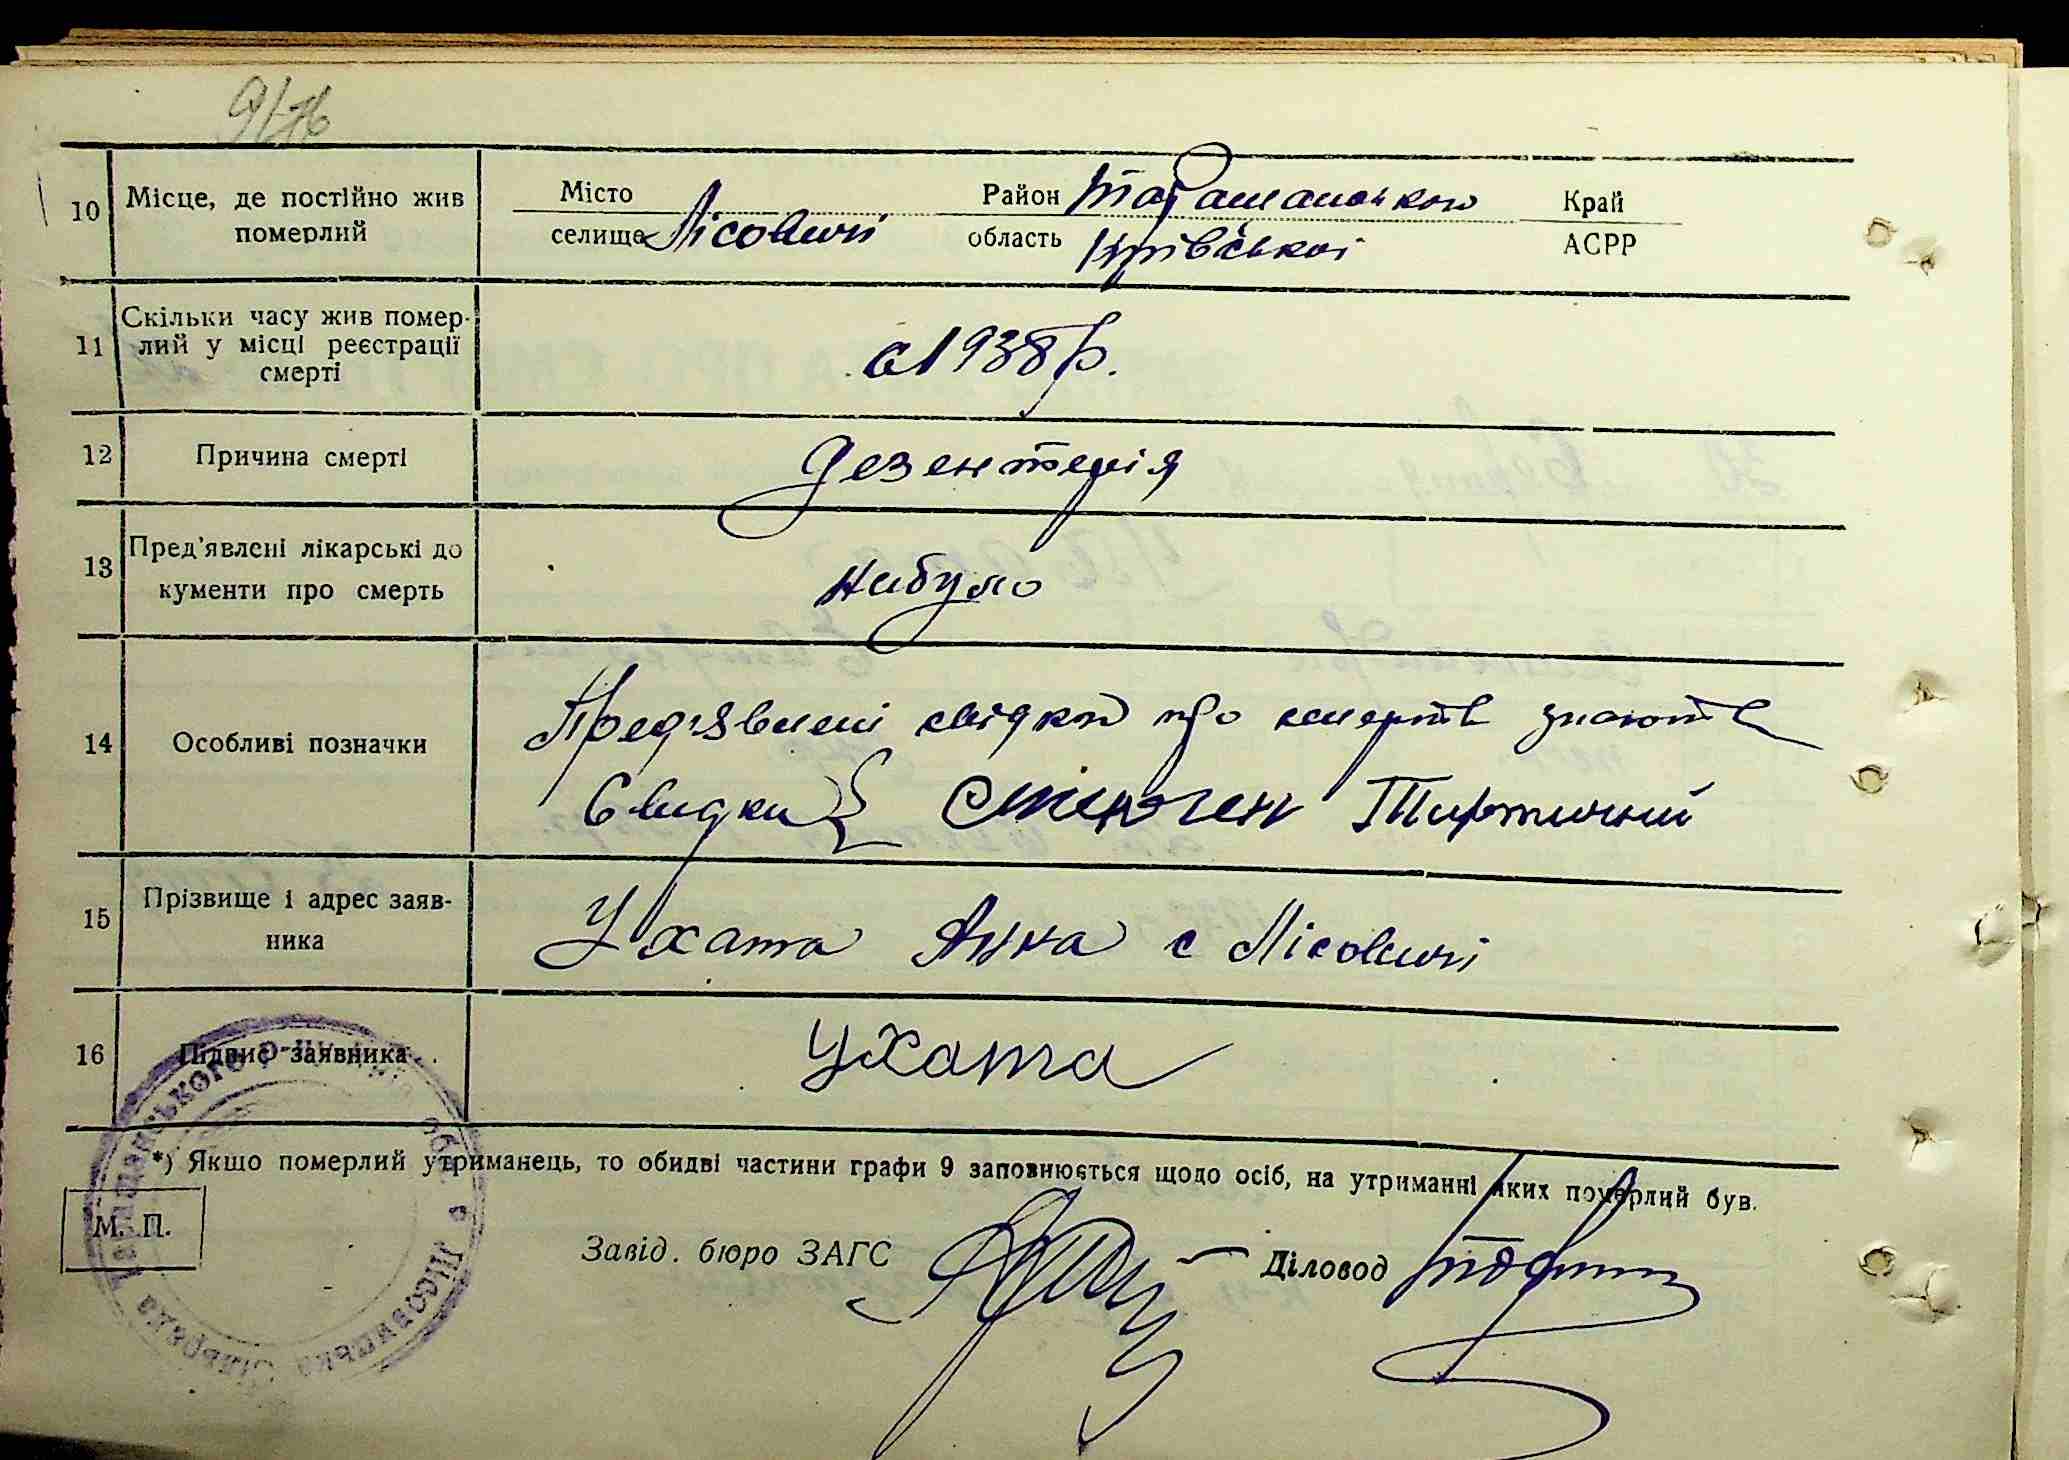 10 Місце, де постійно жив
померлий
Місто Район Таращанського Край
селище Лісовичі область Київської АСРР
11 Скільки часу жив помер-
лий у місці реєстрації
смерті
с 1938 р.
12 Причина смерті дезентерія
13 Пред'явлені лікарські до
кументи про смерть
небуло
14 Особливі позначки
Предявлені свідки про смерть знають
Свидки
15 Прізвище і адрес заяв-
ника
Ухата Анна с Лісовичі
16 Підпис заявника Ухата
*) Якщо померлий утриманець, то обидві частини графи 9 заповнюється щодо осіб, на утриманні яких померлий був.
М. П.
Завід. бюро ЗАГС Діловод